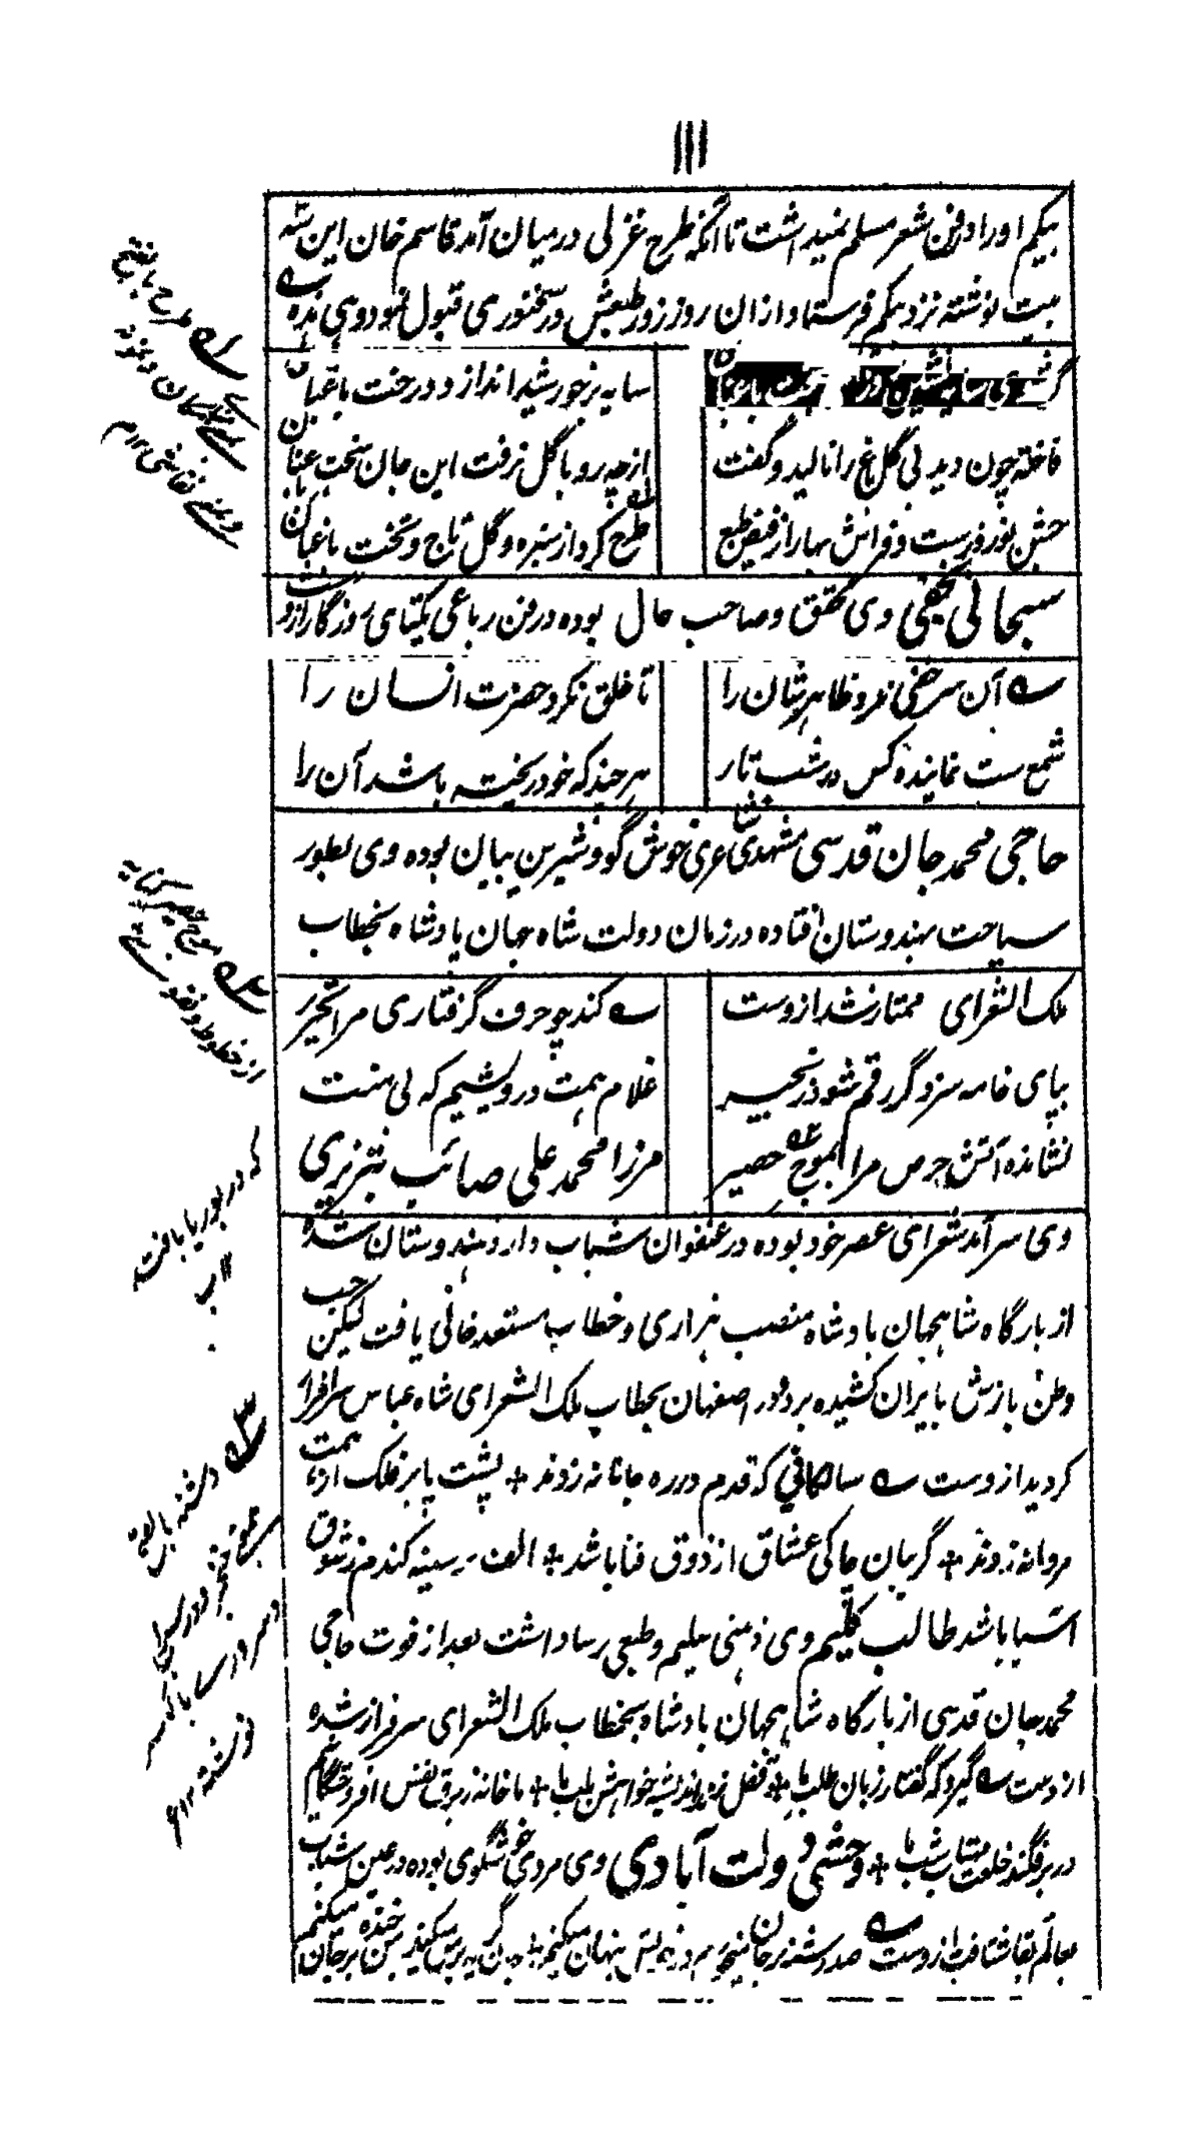 ۱۱۱
بیگم اورا در فن شعر مسلم نمیداشت تا آنکه طرح غزلی درمیان آمد قاسم خان این سه
بیت نوشته نزد بیگم فرستاد ازان روز زور طبعش در سخنوری قبول نمود وهی هذه
سایه بر خورشید اندازد درخت باغبان
فاخته چون دید بی گل باغ را نالید و گفت
ازچه رو با گل نرفت این جان سخت باغبان
جشن نوروز ست و فراش بهار از فیض طبع
طرح کرد از سبزه و گل تاج و تخت باغبان
سبحانی نجفی وی محقق و صاحب حال بوده در فن رباعی یکتای روزگار ازوست
آن سر خفی نمود ظاهر شان را
تا خلق نکرد حضرت انسان را
شمع ست نماینده کس در شب تار
هر چند که خود ریخته باشد آن را
حاجی محمد جان قدسی مشهدی شاعری خوش گو و شیرین بیان بوده وی بطور
سیاحت بهندوستان افتاده در زمان دولت شاه جهان پادشاه بخطاب
ملک الشعرای ممتاز شد ازوست
کند چو حرف گرفتاری مرا تحریر
بپای خامه سزد گر رقم شود زنجیر
غلام همت درویشیم که بی منت
نشانده آتش حرص مرا بموج حصیر
مرزا محمد علی صائب تبریزی
وی سرآمد شعرای عصر خود بوده در عنفوان شباب وارد هندوستان شده
از بارگاه شاهجهان بادشاه منصب هزاری و خطاب مستعد خانی یافت لیکن حب
وطن بازش بایران کشیده برد و در اصفهان بخطاب ملک الشعرای شاه عباس سرافراز
گردید ازوست سالکانی که قدم در ره جانانه زدند + پشت پا بر فلک از همت
مردانه زدند + گریبان چاکی عشاق از ذوق فنا باشد + الف بر سینه گندم ز شوق
آسیا باشد طالب کلیم وی ذهنی سلیم و طبعی رسا داشت بعد از فوت حاجی
محمد جان قدسی از بارگاه شاهجهان بادشاه بخطاب ملک الشعرای سرفراز شده
ازوست گیرد که گفتار زبان طلب ما + قفل زد اندیشه خواهش بلب ما + ما خانه ز برق نفس افروختگانیم
در بر فگند خلعت مهتاب شب ما + وحشی دولت آبادی وی مردی خوشگوی بوده در عین شباب
بعالم بقا شتافت ازوست
طرح بالفتح
که در بوریا بافت
۱۲ ب
دشنه
نوشته ۱۲